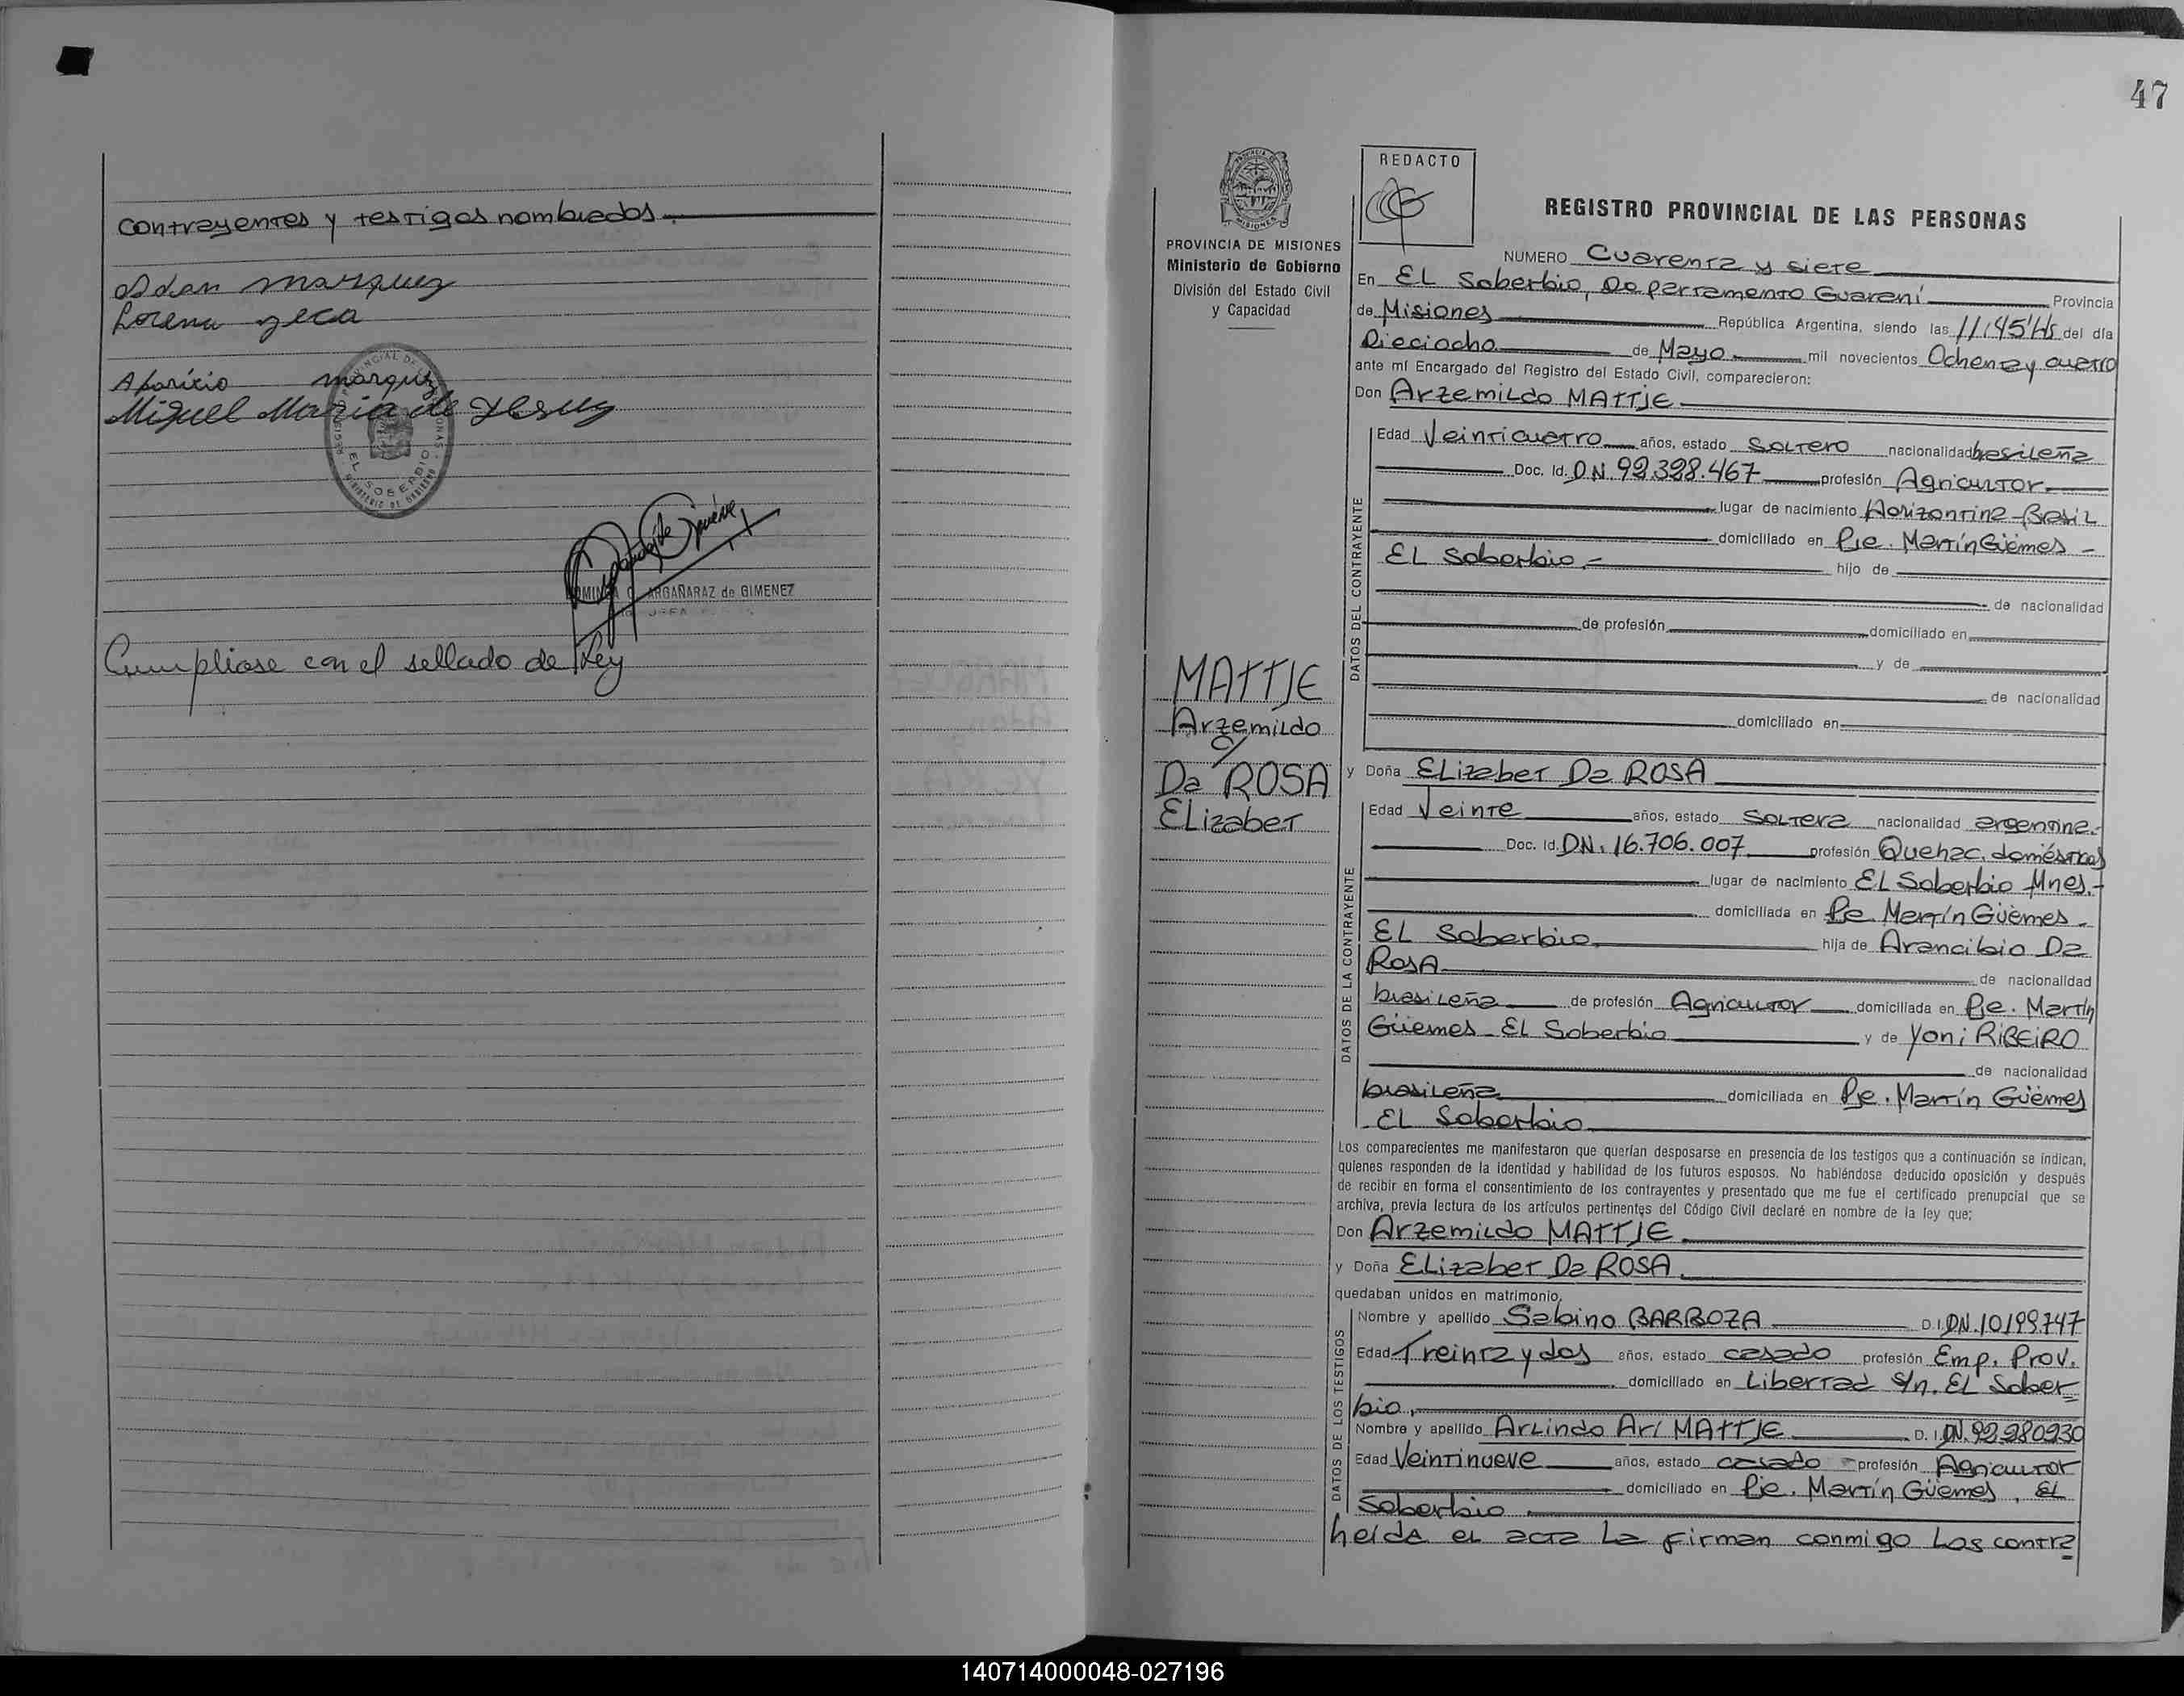 contrayentes y testigos nombrados.
Adan marquez
Lorena yeca
Aparicio marquez
Miguel Maria de Jesus
EL SOBERBIO
ARGAÑARAZ de GIMENEZ
Cumpliose con el sellado de Ley
47
PROVINCIA DE MISIONES
Ministerio de Gobierno
División del Estado Civil
y Capacidad
REDACTO
REGISTRO PROVINCIAL DE LAS PERSONAS
NUMERO Cuarenta y siete
En EL Soberbio, Departamento Guaraní Provincia
de Misiones República Argentina, siendo las 11,45'Hs del día
Dieciocho de Mayo mil novecientos Ochenta y cuatro
ante mí Encargado del Registro del Estado Civil, comparecieron:
Don Arzemildo MATTJE
MATTJE
Arzemildo
c/
Da ROSA
Elizabet
DATOS DEL CONTRAYENTE
Edad Veinticuatro años, estado Soltero nacionalidad brasileña
Doc. Id. D.N. 92.328.467 profesión Agricultor
lugar de nacimiento Horizontina-Brasil
domiciliado en Pje. Martín Güemes -
EL Soberbio.- hijo de
de nacionalidad
de profesión domiciliado en
y de
de nacionalidad
domiciliado en
y Doña Elizabet Da ROSA
DATOS DE LA CONTRAYENTE
Edad Veinte años, estado Soltera nacionalidad argentina.-
Doc. Id. DN. 16.706.007 profesión Quehac. domésticos
lugar de nacimiento EL Soberbio Mnes.-
domiciliada en Pje. Martín Güemes -
EL Soberbio. hija de Arancibio Da
Rosa de nacionalidad
brasileña de profesión Agricultor domiciliada en Pje. Martín
Güemes - EL Soberbio y de Yoni RIBEIRO
de nacionalidad
brasileña domiciliada en Pje. Martín Güemes
EL Soberbio
Los comparecientes me manifestaron que querían desposarse en presencia de los testigos que a continuación se indican,
quienes responden de la identidad y habilidad de los futuros esposos. No habiéndose deducido oposición y después
de recibir en forma el consentimiento de los contrayentes y presentado que me fue el certificado prenupcial que se
archiva, previa lectura de los artículos pertinentes del Código Civil declaré en nombre de la ley que;
Don Arzemildo MATTJE
y Doña Elizabet Da ROSA
quedaban unidos en matrimonio.
DATOS DE LOS TESTIGOS
Nombre y apellido Sabino BARBOZA D.I. DN. 10.199.747
Edad Treinta y dos años, estado casado profesión Emp. Prov.
domiciliado en Libertad S/n. EL Sober
bio.
Nombre y apellido Arlindo Arí MATTJE D. I. DN. 92.280.230
Edad Veintinueve años, estado casado profesión Agricultor
domiciliado en Pje. Martín Güemes, EL
Soberbio
heída el acta La firman conmigo Los contra
140714000048-027196